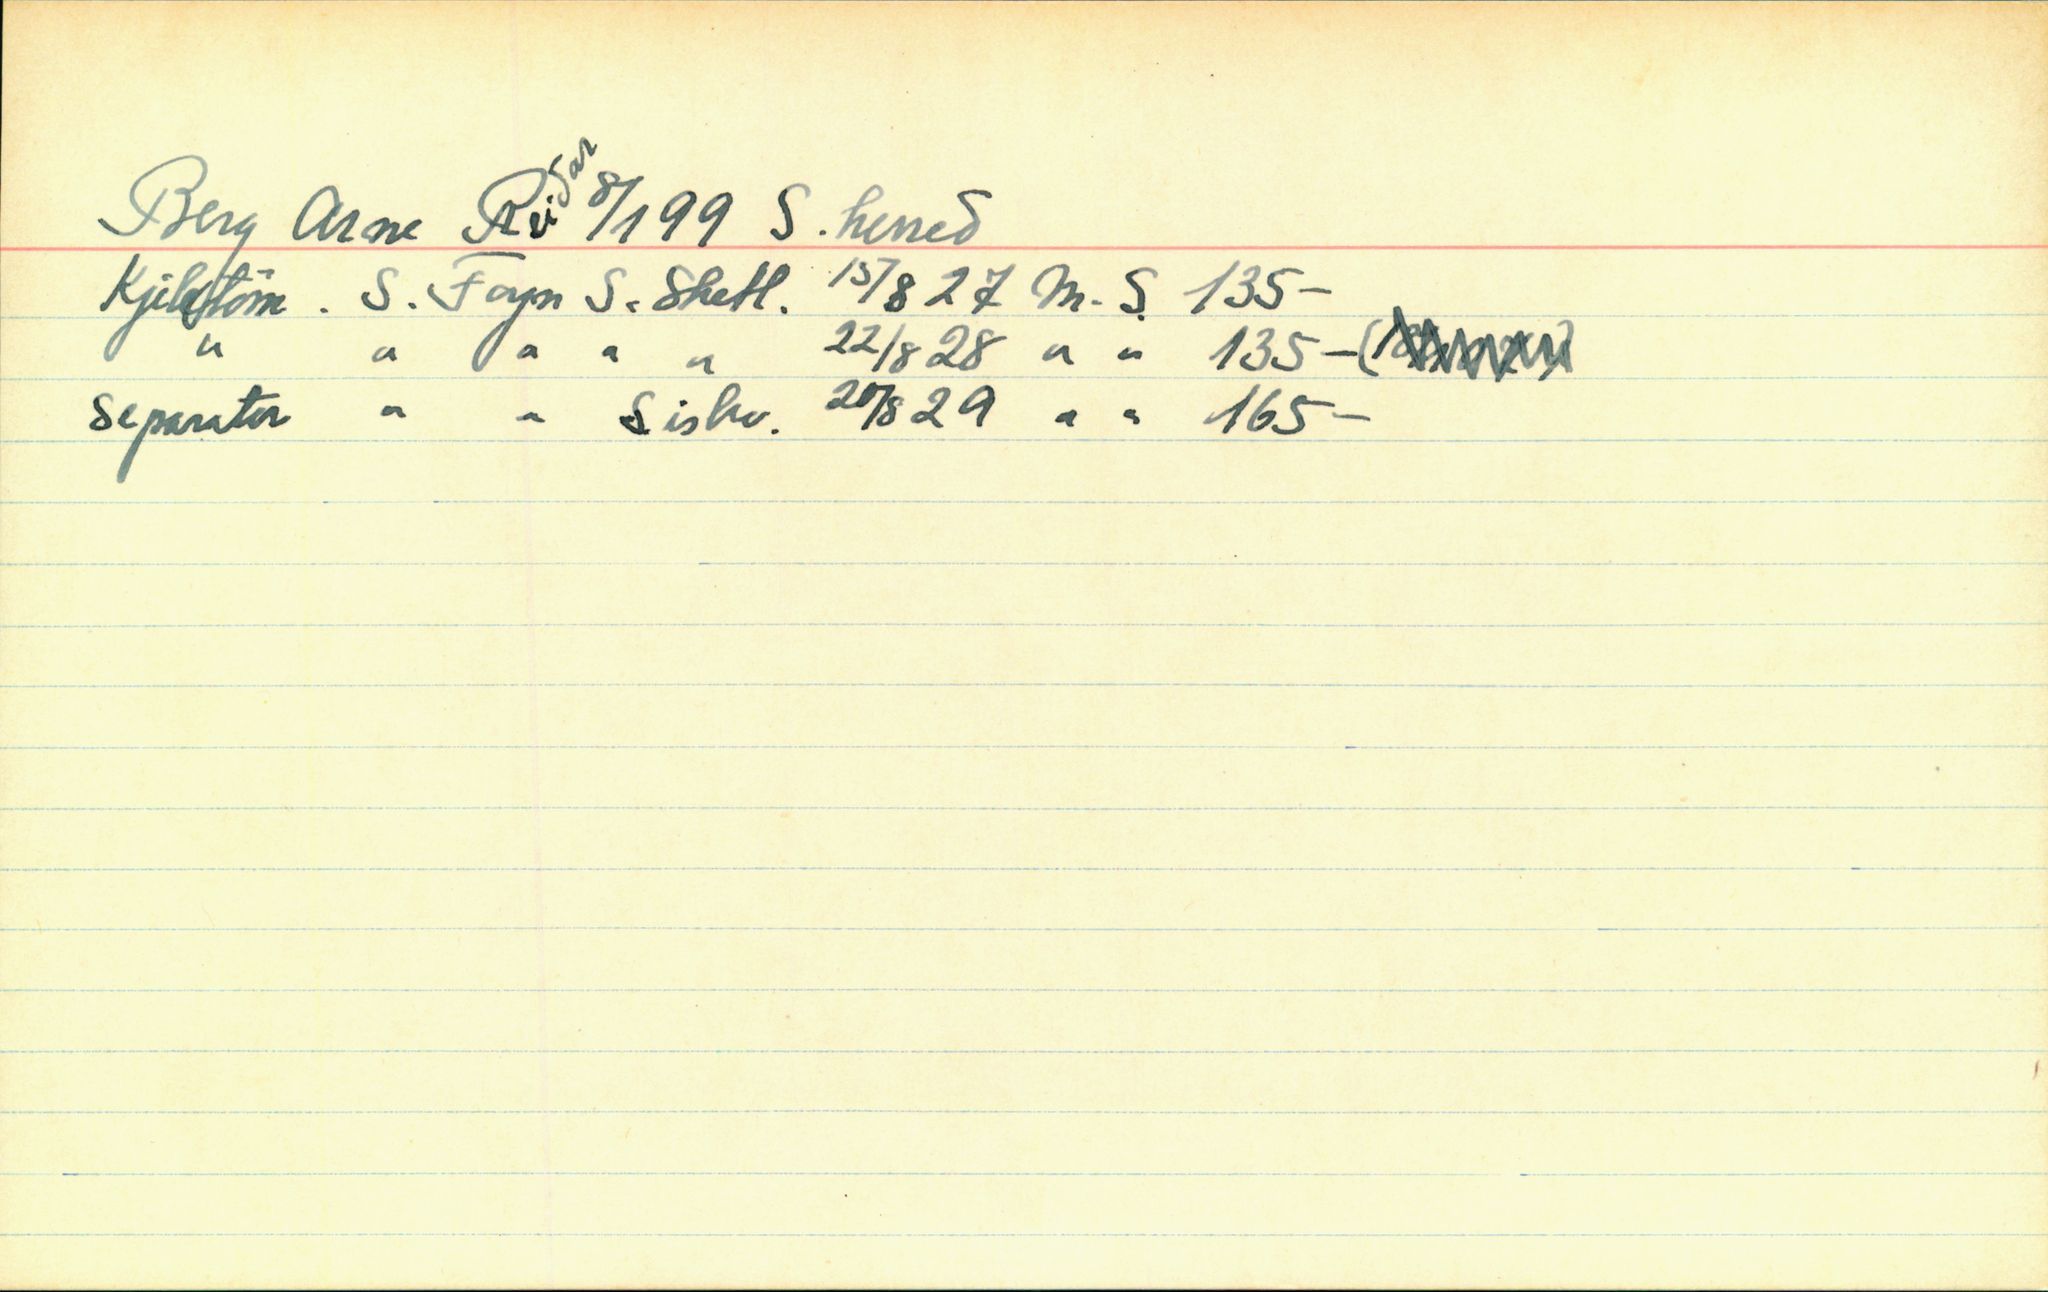 Berg Arne Reidar 8/1 99 S. herred
Kjelestöm. S. Foyn S. Shetl. 15/8 27 M. S. 135-
" " " " " 22/8 28 " " 135-
Separator " " S ishv. 20/8 29 " " 165-